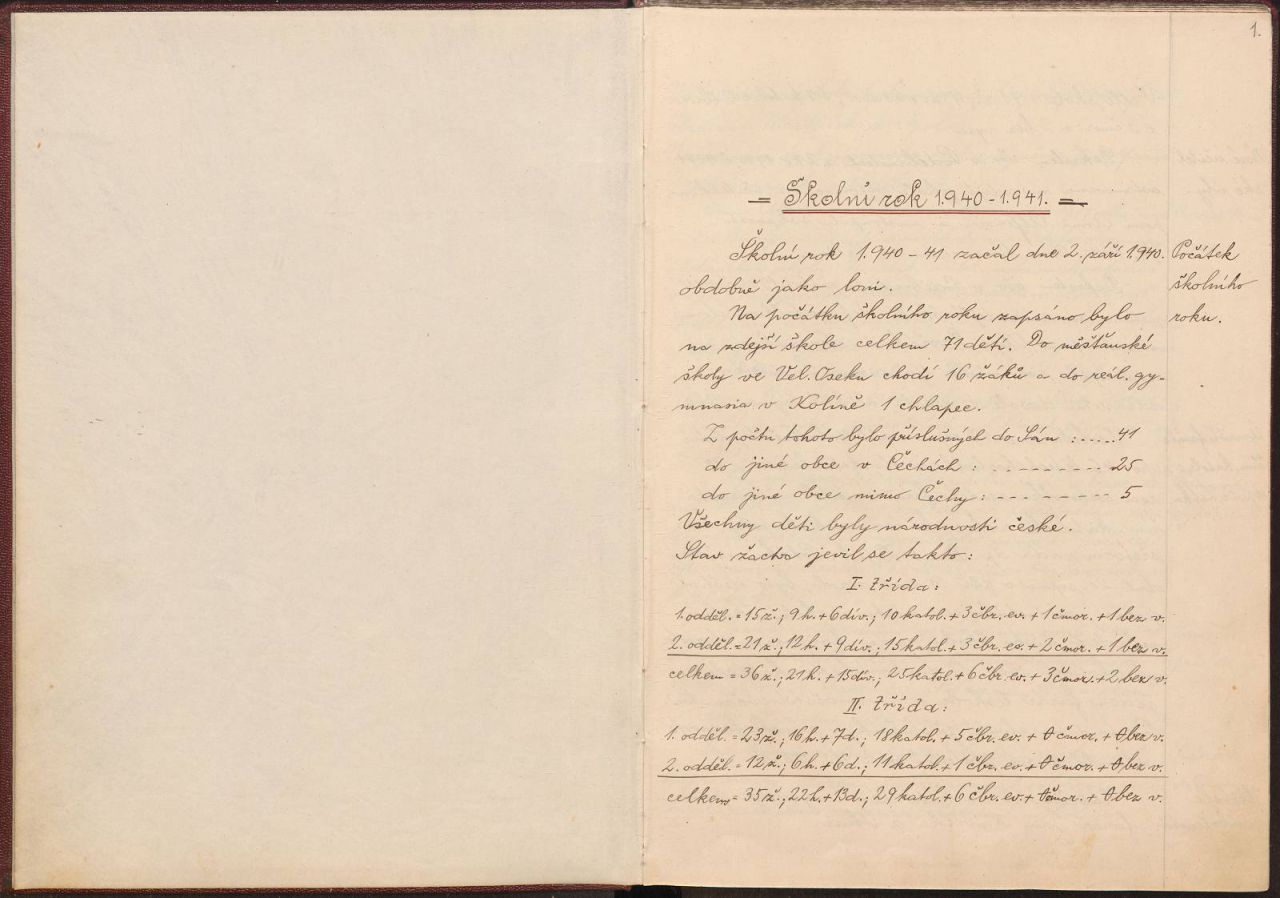 1.
= Školní rok 1940-1941. =
Školní rok 1940-41 začal dne 2. září 1940.
obdobně jako loni.
Na počátku školního roku zapsáno bylo
na zdejší škole celkem 71 dětí. Do měšťanské
školy ve Vel. Oseku chodí 16 žáků a do reál. gy-
mnasia v Kolíně 1 chlapec.
Z počtu tohoto bylo příslušných do Sán : ..... 41
do jiné obce v Čechách : - - - - - - - - - 25
do jiné obce mimo Čechy : - - - - - - - - 5
Všechny děti byly národnosti české.
Stav žactva jevil se takto:
I. třída:
1. odděl. = 15 ž.; 9 h. + 6 dív.; 10 katol. + 3 čbr. ev. + 1 čmor. + 1 bez v.
2. odděl. = 21 ž.; 12 h. + 9 dív.; 15 katol. + 3 čbr. ev. + 2 čmor. + 1 bez v.
celkem = 36 ž.; 21 h. + 15 dív.; 25 katol. + 6 čbr. ev. + 3 čmor. + 2 bez v.
II. třída:
1. odděl. = 23 ž.; 16 h. + 7 d.; 18 katol. + 5 čbr. ev. + 0 čmor. + 0 bez v.
2. odděl. = 12 ž.; 6 h. + 6 d.; 11 katol. + 1 čbr. ev. + 0 čmor. + 0 bez v.
celkem = 35 ž.; 22 h. + 13 d.; 29 katol. + 6 čbr. ev. + 0 čmor. + 0 bez v.
Počátek
školního
roku.